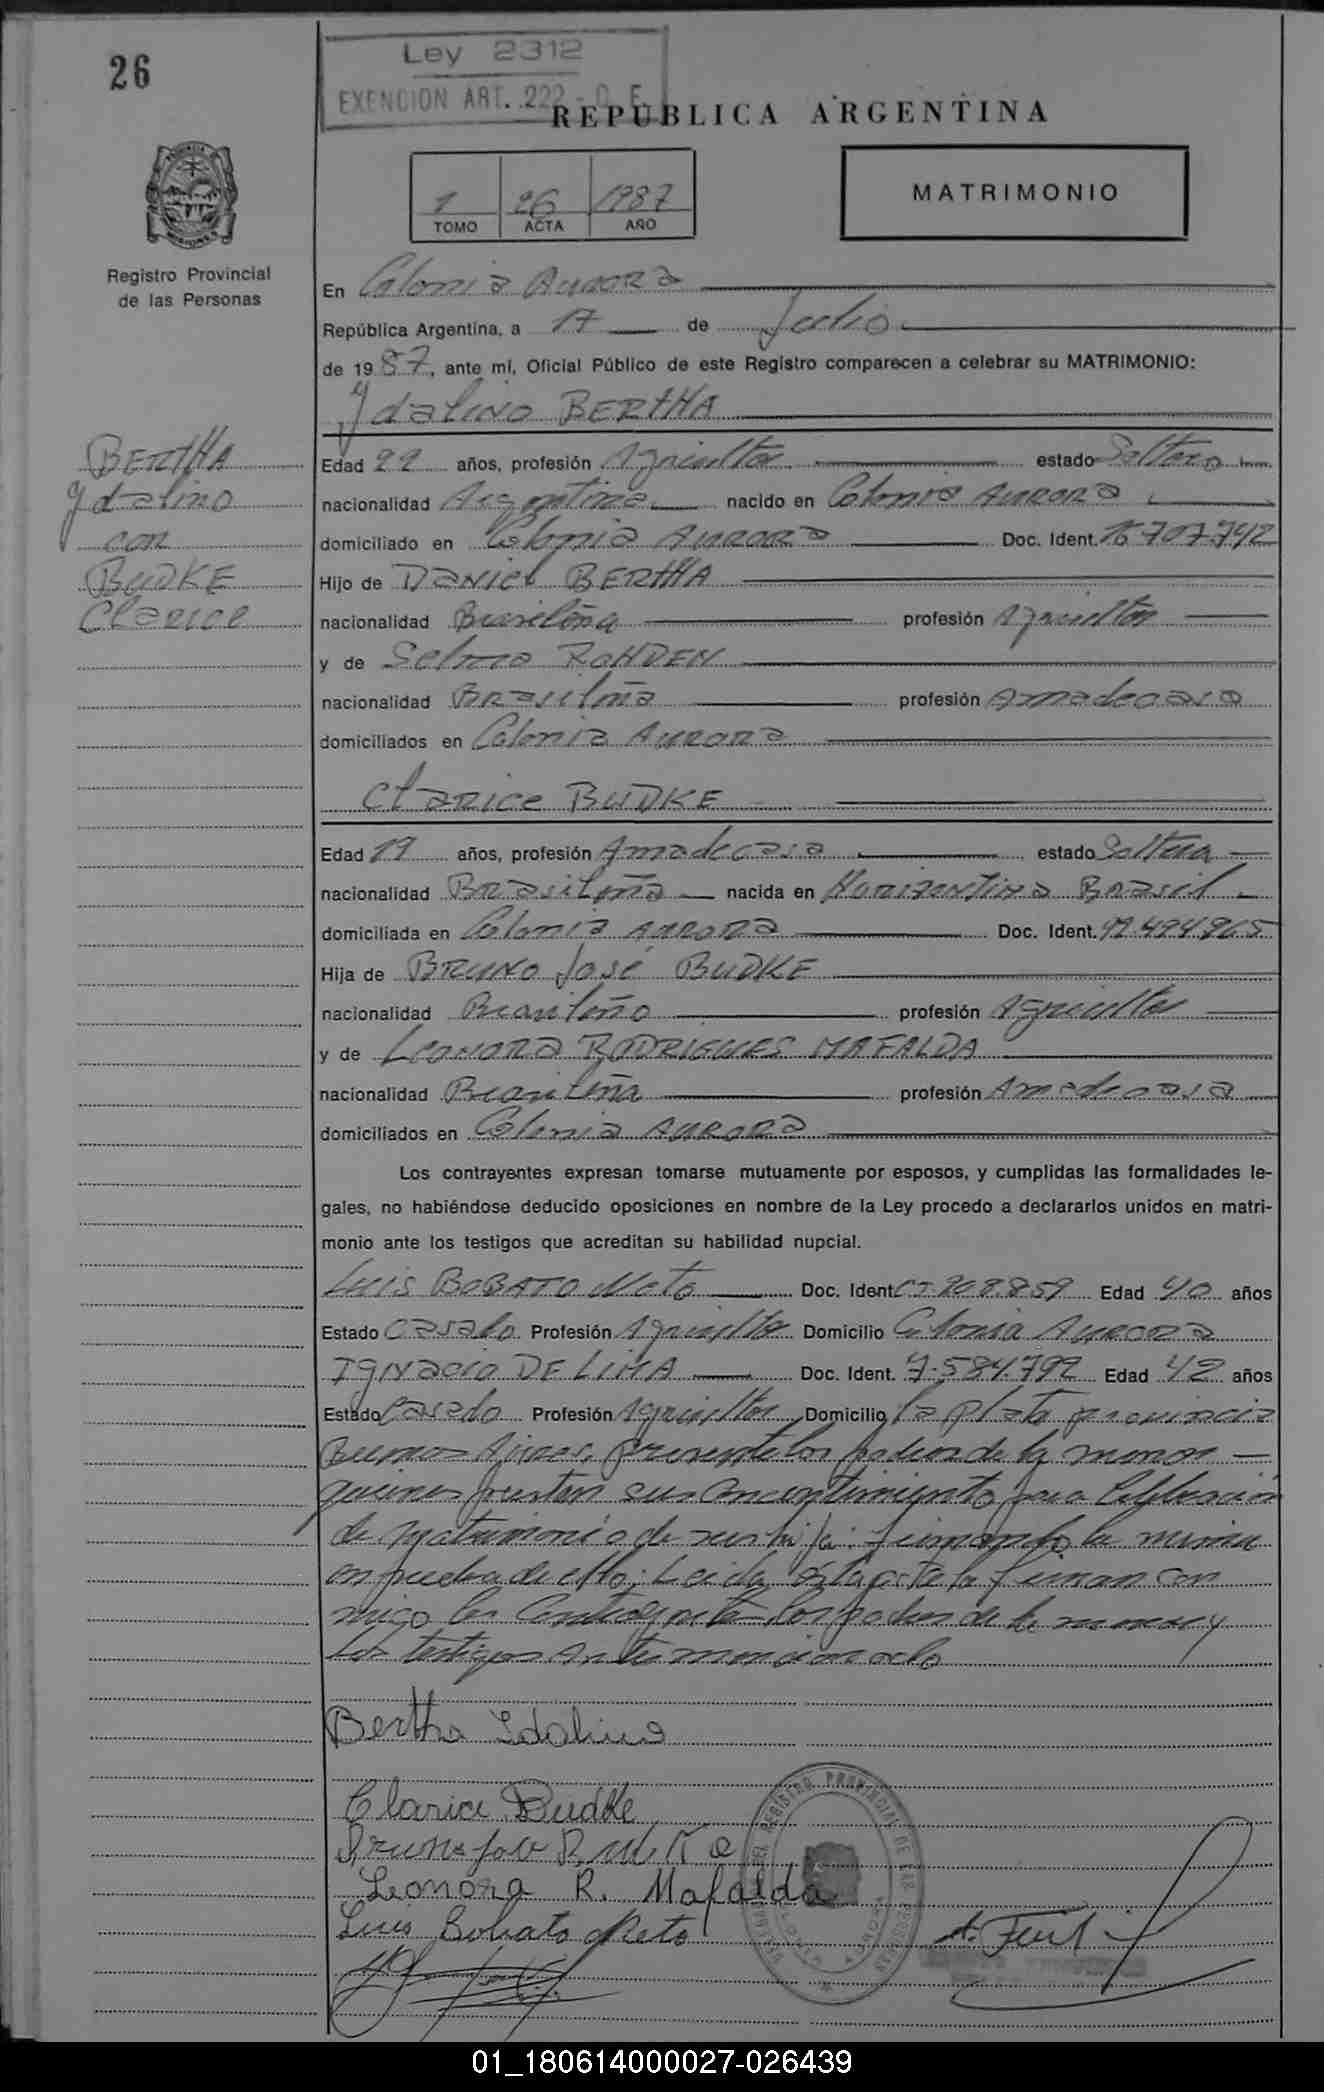 26
Ley 2312
EXENCION ART. 222 - C. F.
REPUBLICA ARGENTINA
1 26 1987
TOMO ACTA AÑO
MATRIMONIO
PROVINCIA
MISIONES
Registro Provincial
de las Personas
En Colonia Aurora
República Argentina, a 17 de Julio
de 1987, ante mí, Oficial Público de este Registro comparecen a celebrar su MATRIMONIO:
Ydalino BERTHA
BERTHA
Ydalino
con
BUDKE
Clarice
Edad 22 años, profesión Agricultor estado Soltero
nacionalidad Argentina nacido en Colonia Aurora
domiciliado en Colonia Aurora Doc. Ident. 18.707.742
Hijo de Daniel BERTHA
nacionalidad Brasileña profesión Agricultor
y de Selma ROHDEN
nacionalidad Brasileña profesión Amadecasa
domiciliados en Colonia Aurora
Clarice BUDKE
Edad 19 años, profesión Amadecasa estado Soltera
nacionalidad Brasileña nacida en Horizontina Brasil
domiciliada en Colonia Aurora Doc. Ident. 92.494.965
Hija de BRUNO José BUDKE
nacionalidad Brasileño profesión Agricultor
y de Leonora RODRIGUES MAFALDA
nacionalidad Brasileña profesión Amadecasa
domiciliados en Colonia Aurora
Los contrayentes expresan tomarse mutuamente por esposos, y cumplidas las formalidades le-
gales, no habiéndose deducido oposiciones en nombre de la Ley procedo a declararlos unidos en matri-
monio ante los testigos que acreditan su habilidad nupcial.
Luis BOBATO Neto Doc. Ident. CI 208.859 Edad 40 años
Estado Casado Profesión Agricultor Domicilio Colonia Aurora
Ignacio DE LIMA Doc. Ident. 7.584.792 Edad 42 años
Estado Casado Profesión Agricultor Domicilio la plata provincia
Buenos Aires, presente los padres de la menor
quienes prestan su concentimiento para la celebración
de matrimonio de su hija firmando la misma
en prueba de ello; Leida esta acta la firman con
migo los contrayentes, los padres de la menor y
los testigos antes mencionado
Bertha Idalino
Clarice Budke
Leonora R. Mafalda
Luis Bobato Neto
REGISTRO PROVINCIAL DE LAS PERSONAS